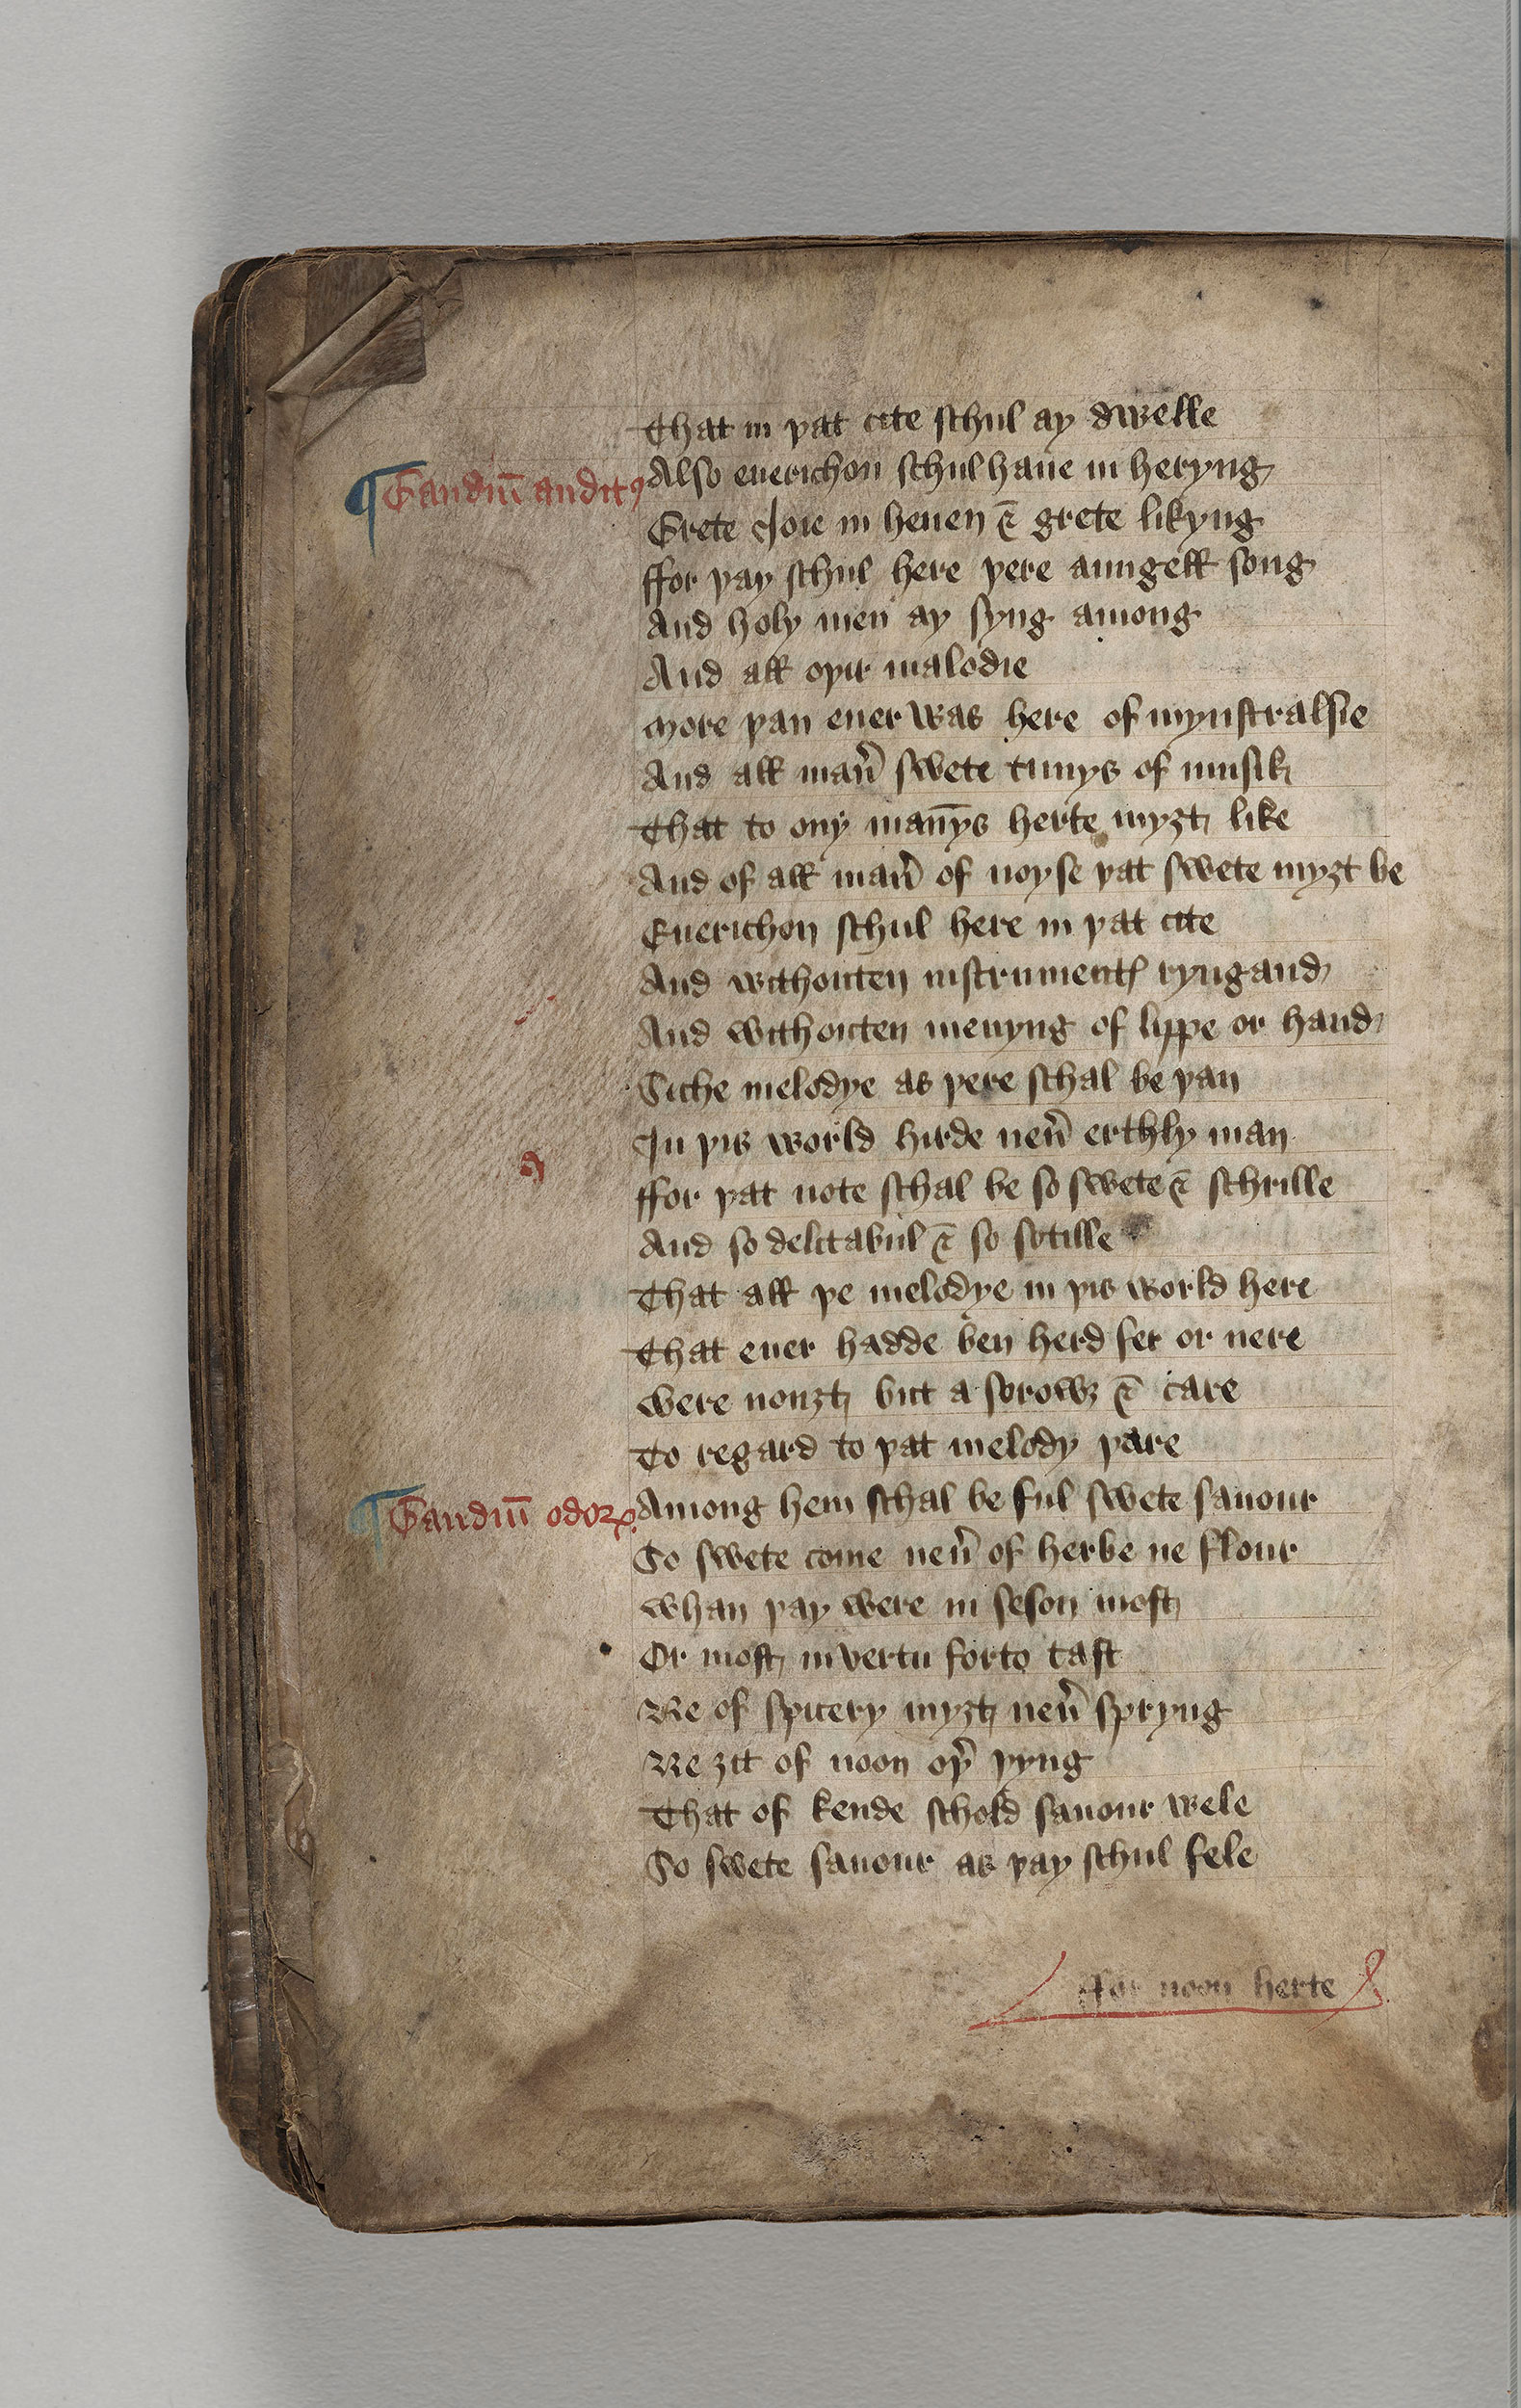 That in þat cite schul ay dwelle
¶ Gaudiū auditꝰ
Also euerichon schul haue in heryng
Grete Joie in heuen ⁊ grete likyng
ffor þay schul here þere aungell song
And holy men ay syng among
And all oþir malodie
More þan euer was here of mynstralsie
And all man̉ swete tunys of musik
That to ony man̄ys herte myȝt like
And of all man̉ of noyse þat swete myȝt be
Euerichon schul here in þat cite
And withouten instrumentꝭ ryngand
And withouten meuyng of lippe or hand
Siche melodye as þere schal be þan
In þis world hirde neủ erthly man
ffor þat note schal be so swete ⁊ schrille
And so delitabul ⁊ so sotille
That all þe melodye in þis world here
That euer hadde ben herd fer or nere
Were nouȝt but a sorowȝ ⁊ care
To regard to þat melody þare
¶ Gaudiū odorꝫ
Among hem schal be ful swete sauour
So swete come neủ of herbe ne flour
Whan þay were in seson most
Or most in vertu forto tast
Ne of spicery myȝt neủ spryng
Ne ȝit of noon oþ̉ þyng
That of kende schold sauour wele
So swete sauour as þay schul fele
ffor noon herte